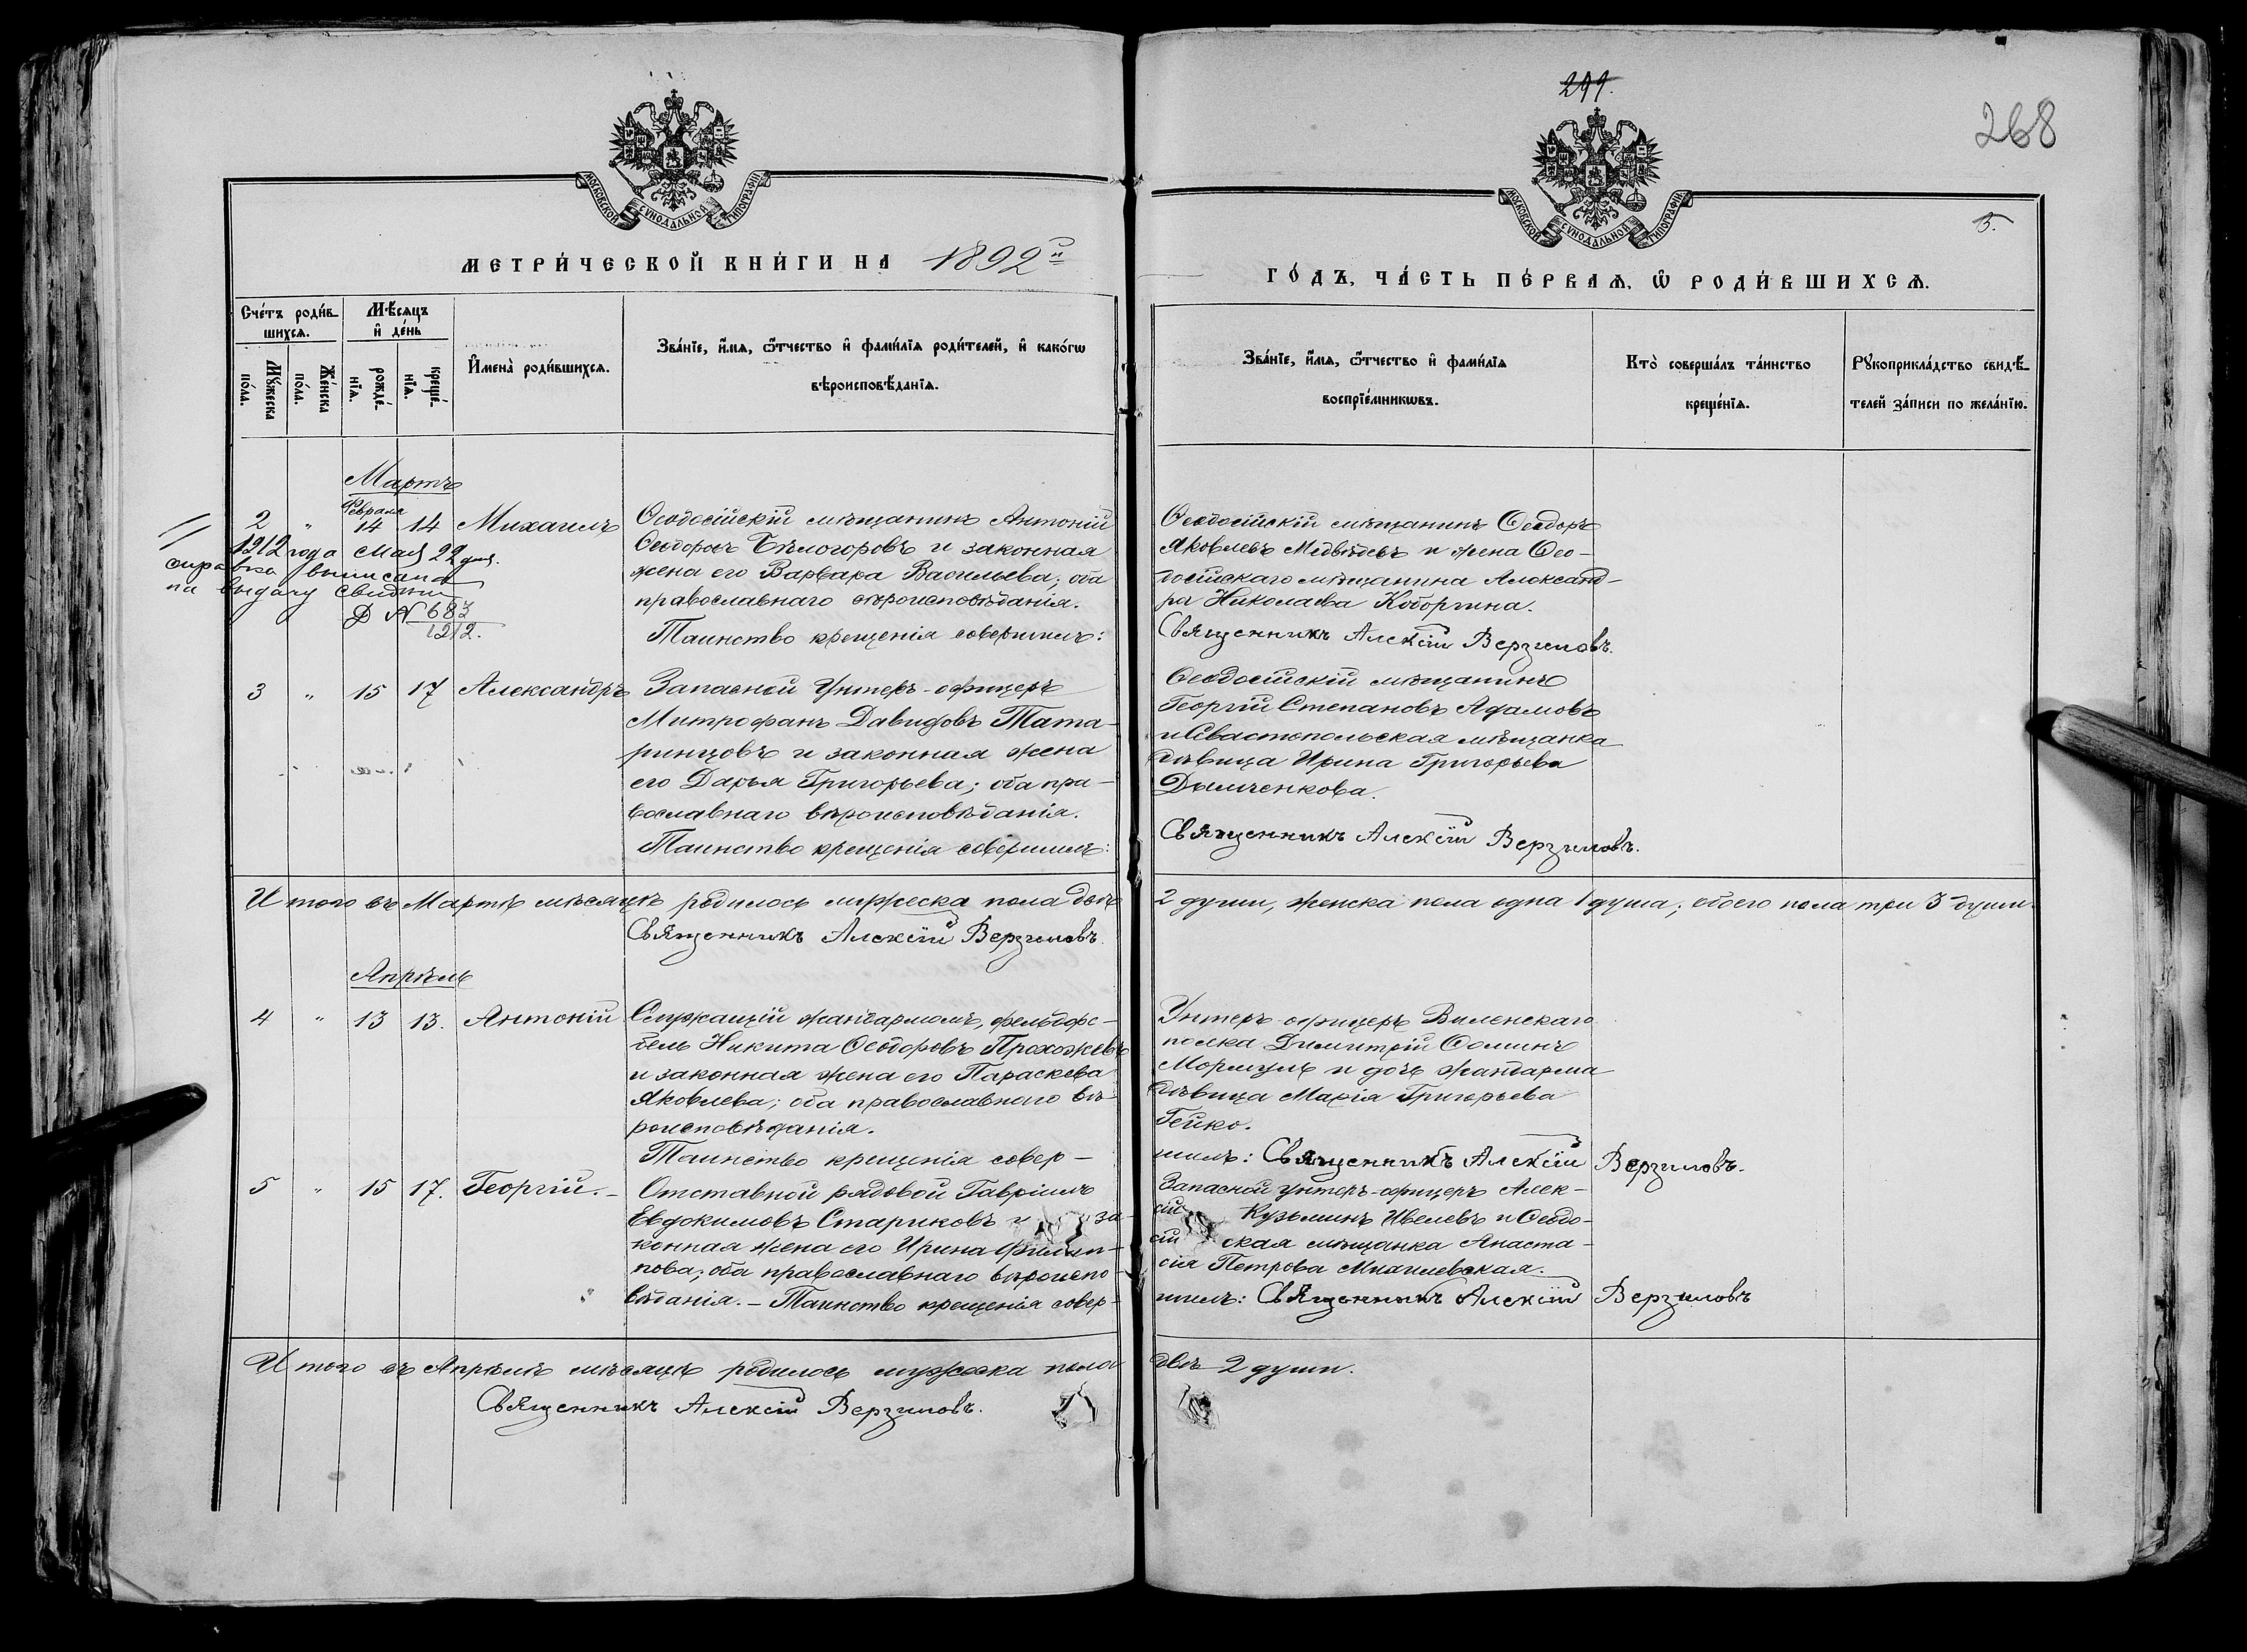 299.
268
5.
МОСКОВСКОЙ СУНОДАЛЬНОЙ ТИПОГРАФІИ
МОСКОВСКОЙ СУНОДАЛЬНОЙ ТИПОГРАФІИ
МЕТРИ́ЧЕСКОЙ КНИ́ГИ НА 1892й
ГО́ДЪ, ЧА́СТЬ ПЕ́РВАѦ, Ѽ РОДИ́ВШИХСѦ.
Сче́тъ роди́в-
шихсѧ.
Мꙋ́жеска
по́ла.
Же́нска
по́ла.
Мѣ́сѧцъ
и҆ де́нь
рожде́-
нїѧ.
креще́-
нїѧ.
И҆мена̀ роди́вшихсѧ.
Зва́нїе, и҆́мѧ, ѻ҆́тчество и҆ фамилїѧ роди́телей, и҆ како́гѡ
вѣроисповѣ́данїѧ.
Зва́нїе, и҆́мѧ, ѻ҆́тчество и҆ фами́лїѧ
воспрїе́мникѡвъ.
Кто̀ соверша́лъ та́инство
креще́нїѧ.
Рꙋкоприкла́дство свидѣ́-
телей за́писи по жела́нїю.
Мартъ
Февраля
2 " 14 14 Михаилъ
Ѳеодосійскій мѣщанинъ Антоній
Ѳеодоровъ Бѣлогоровъ и законная
жена его Варвара Васильева; оба
православнаго вѣроисповѣданія.
Таинство крещенія совершилъ:
Ѳеодосійскій мѣщанинъ Ѳеодоръ
Яковлевъ Медвѣдевъ и жена Ѳео-
досійскаго мѣщанина Александ-
ра Николаева Кобогина.
Священникъ Алексій Верзиловъ.
1212 года Мая 22 дня.
справка выписана
на выдачу свидѣт
Д № 683
1212.
3 " 15 17 Александръ
Запасной Унтеръ-офицеръ
Митрофанъ Давидовъ Тата-
ринцовъ и законная жена
его Дарья Григорьева; оба пра-
вославнаго вѣроисповѣданія.
Таинство крещенія совершилъ:
Ѳеодосійскій мѣщанинъ
Георгій Степановъ Адамовъ
и Севастопольская мѣщанка
дѣвица Ирина Григорьева
Дымченкова.
Священникъ Алексій Верзиловъ.
И того въ Мартѣ мѣсяцѣ родилось мужеска пола двѣ 2 души, женска пола одна 1 душа; обоего пола три 3 души.
Священникъ Алексій Верзиловъ.
Апрѣль
4 " 13 13. Антоній
Служащій жандармомъ, фельдфе-
бель Никита Ѳеодоровъ Прохожевъ
и законная жена его Параскева
Яковлева; оба православного вѣ-
роисповѣданія.
Таинство крещенія совер-
Унтеръ-офицеръ Виленскаго
полка Димитрій Ѳоминъ
Мормуль и дочь жандарма
дѣвица Марія Григорьева
Гейко.
шилъ: Священникъ Алексій Верзиловъ.
5 " 15 17. Георгій.
Отставной рядовой Гавріилъ
Евдокимовъ Стариковъ и за-
конная жена его Ирина Филип-
пова; оба православнаго вѣроиспо-
вѣданія. - Таинство крещенія совер-
Запасной унтеръ-офицеръ Алек-
сій Кузьминъ Ивелевъ и Ѳеодо-
сій ская мѣщанка Анаста-
сія Петрова Михилевская.
шилъ: Священникъ Алексій Верзиловъ
И того въ Апрѣлѣ мѣсяцѣ родилось мужеска пола двѣ 2 души.
Священникъ Алексій Верзиловъ.